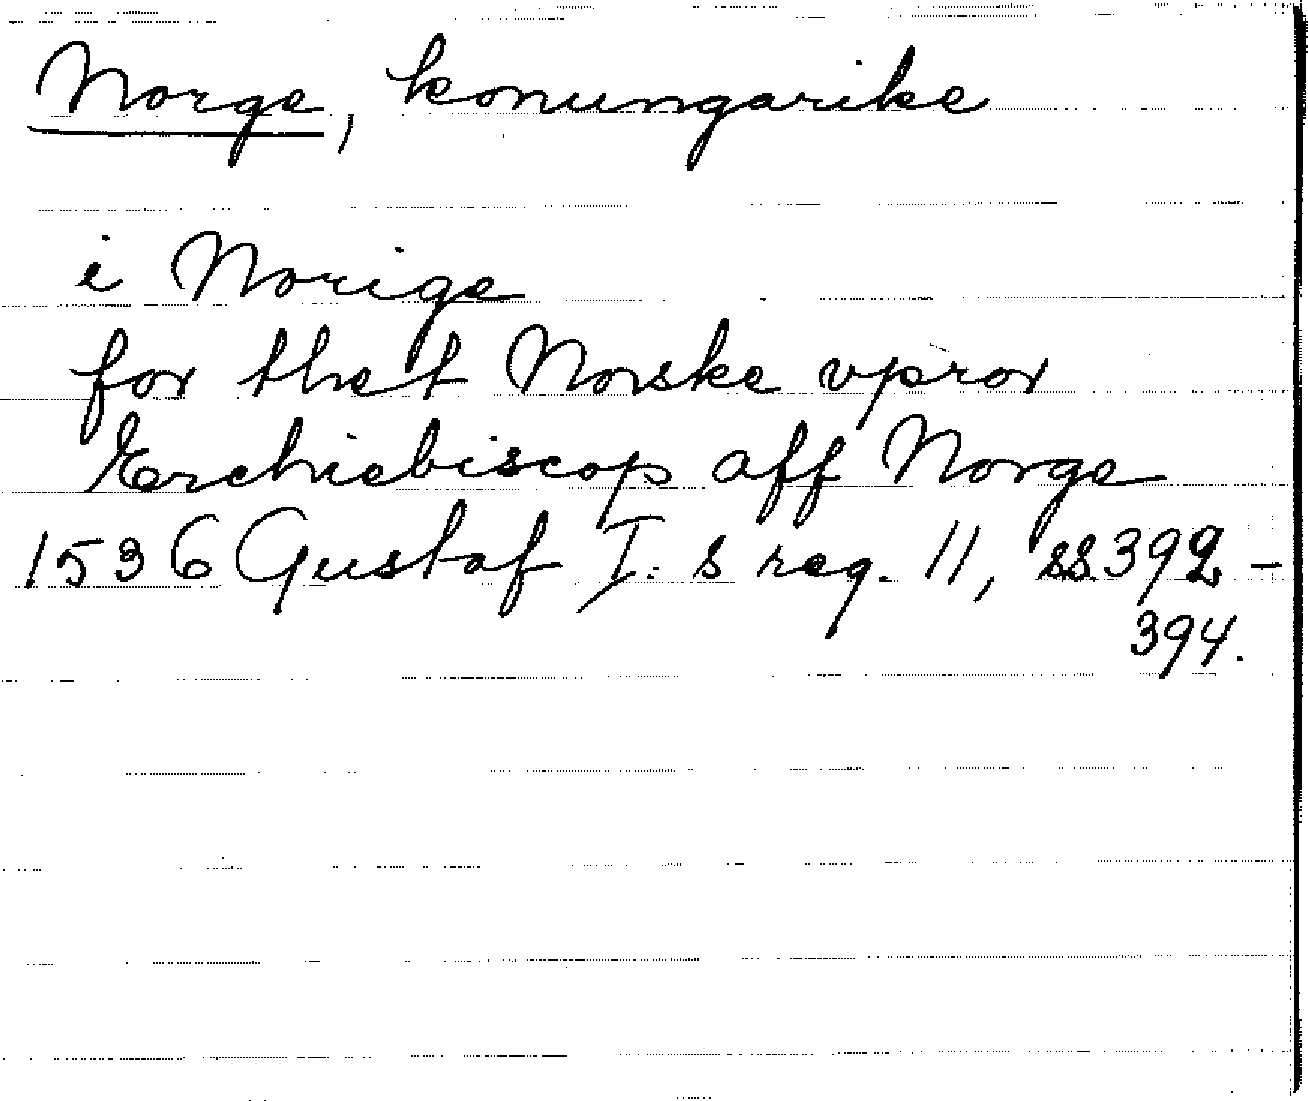 Norge, konungarike
i Norige
for thet Norske vpror
Erchiebiscop aff Norge
1536 Gustaf I:s reg. 11, ss 392-
394.